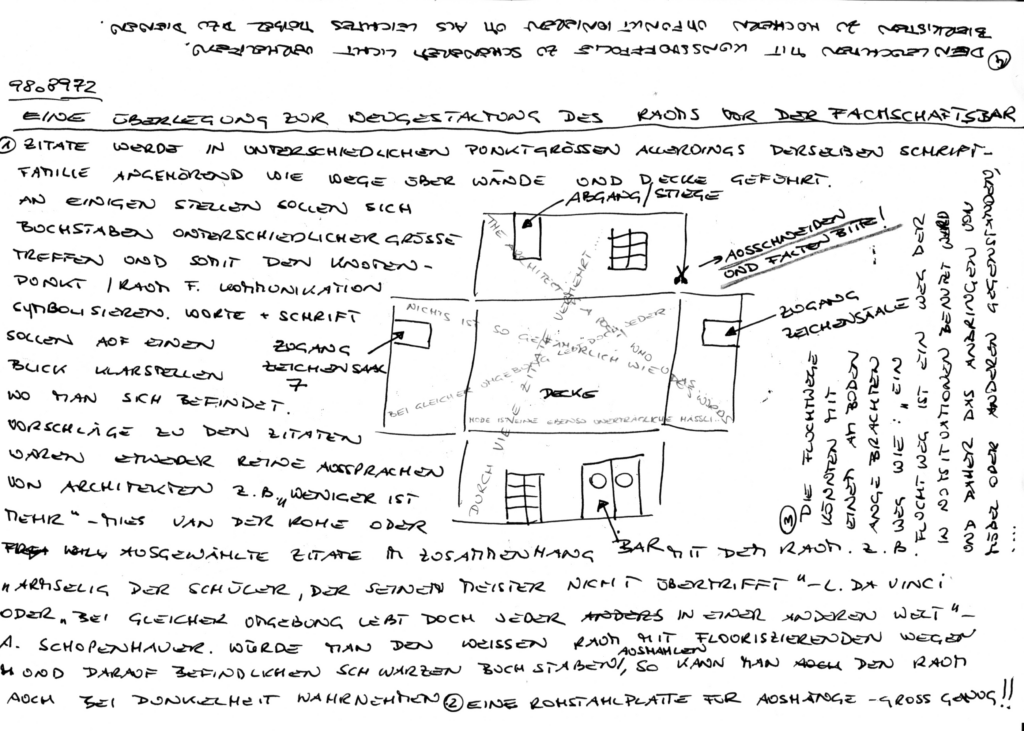 9808972
EINE ÜBERLEGUNG ZUR NEUGESTALTUNG DES RAUMS VOR DER FACHSCHAFTSBAR
① ZITATE WERDE IN UNTERSCHIEDLICHEN PUNKTGRÖSSEN ALLERDINGS DERSELBEN SCHRIFT-
FAMILIE ANGEHÖREND WIE WEGE ÜBER WÄNDE UND DECKE GEFÜHRT.
AN EINIGEN STELLEN SOLLEN SICH
BUCHSTABEN UNTERSCHIEDLICHER GRÖSSE
TREFFEN UND SOMIT DEN KNOTEN-
PUNKT / RAUM F. KOMMUNIKATION
SYMBOLISIEREN. WORTE + SCHRIFT
SOLLEN AUF EINEN
BLICK KLARSTELLEN
WO MAN SICH BEFINDET.
VORSCHLÄGE ZU DEN ZITATEN
WÄREN ETWEDER REINE AUSSPRACHEN
VON ARCHITEKTEN Z.B. „WENIGER IST
MEHR“ - MIES VAN DER ROHE ODER
AUSGEWÄHLTE ZITATE IM ZUSAMMENHANG MIT DEM RAUM. Z.B.
„ARMSELIG DER SCHÜLER, DER SEINEN MEISTER NICHT ÜBERTRIFFT“ - L. DA VINCI
ODER „BEI GLEICHER UMGEBUNG LEBT DOCH JEDER ANDERS IN EINER ANDEREN WELT“ -
A. SCHOPENHAUER. WÜRDE MAN DEN WEISSEN RAUM MIT FLOORISZIERENDEN WEGEN
UND DARAUF BEFINDLICHEN SCHWARZEN BUCHSTABEN AUSMAHLEN, SO KANN MAN AUCH DEN RAUM
AUCH BEI DUNKELHEIT WAHRNEHMEN ② EINE ROHSTAHLPLATTE FÜR AUSHÄNGE - GROSS GENUG!!
③ DIE FLUCHTWEGE
KÖNNTEN MIT
EINEM AM BODEN
ANGEBRACHTEN
WEG WIE: „EIN
FLUCHTWEG IST EIN WEG DER
IN NOTSITUATIONEN BENUTZT WIRD
UND DAHER DAS ANBRINGEN VON
MÖBEL ODER ANDEREN GEGENSTÄNDEN
....
④ DEN LEUCHTEN MIT KUNSSTOFFFOLIE ZU SCHÖNEREN LICHT VERHELFEN.
BIERKISTEN ZU HOCKERN UMFUNKTIONIEREN UM ALS LEICHTES MÖBEL ZU DIENEN.
ABGANG/STIEGE
AUSSCHNEIDEN
UND FALTEN BITTE!
ZUGANG
ZEICHENSAAL
7
ZUGANG
ZEICHENSÄÄLE
DECKE
BAR
THE ARCHITECT
NICHTS IST SO GEFÄHRLICH WIE DAS
BEI GLEICHER UMGEBUNG
DOCH JEDER
MODE IST EINE EBENSO UNERTRÄGLICHE HÄSSLI
DURCH VIELE ZITATE
VERMEHRT...